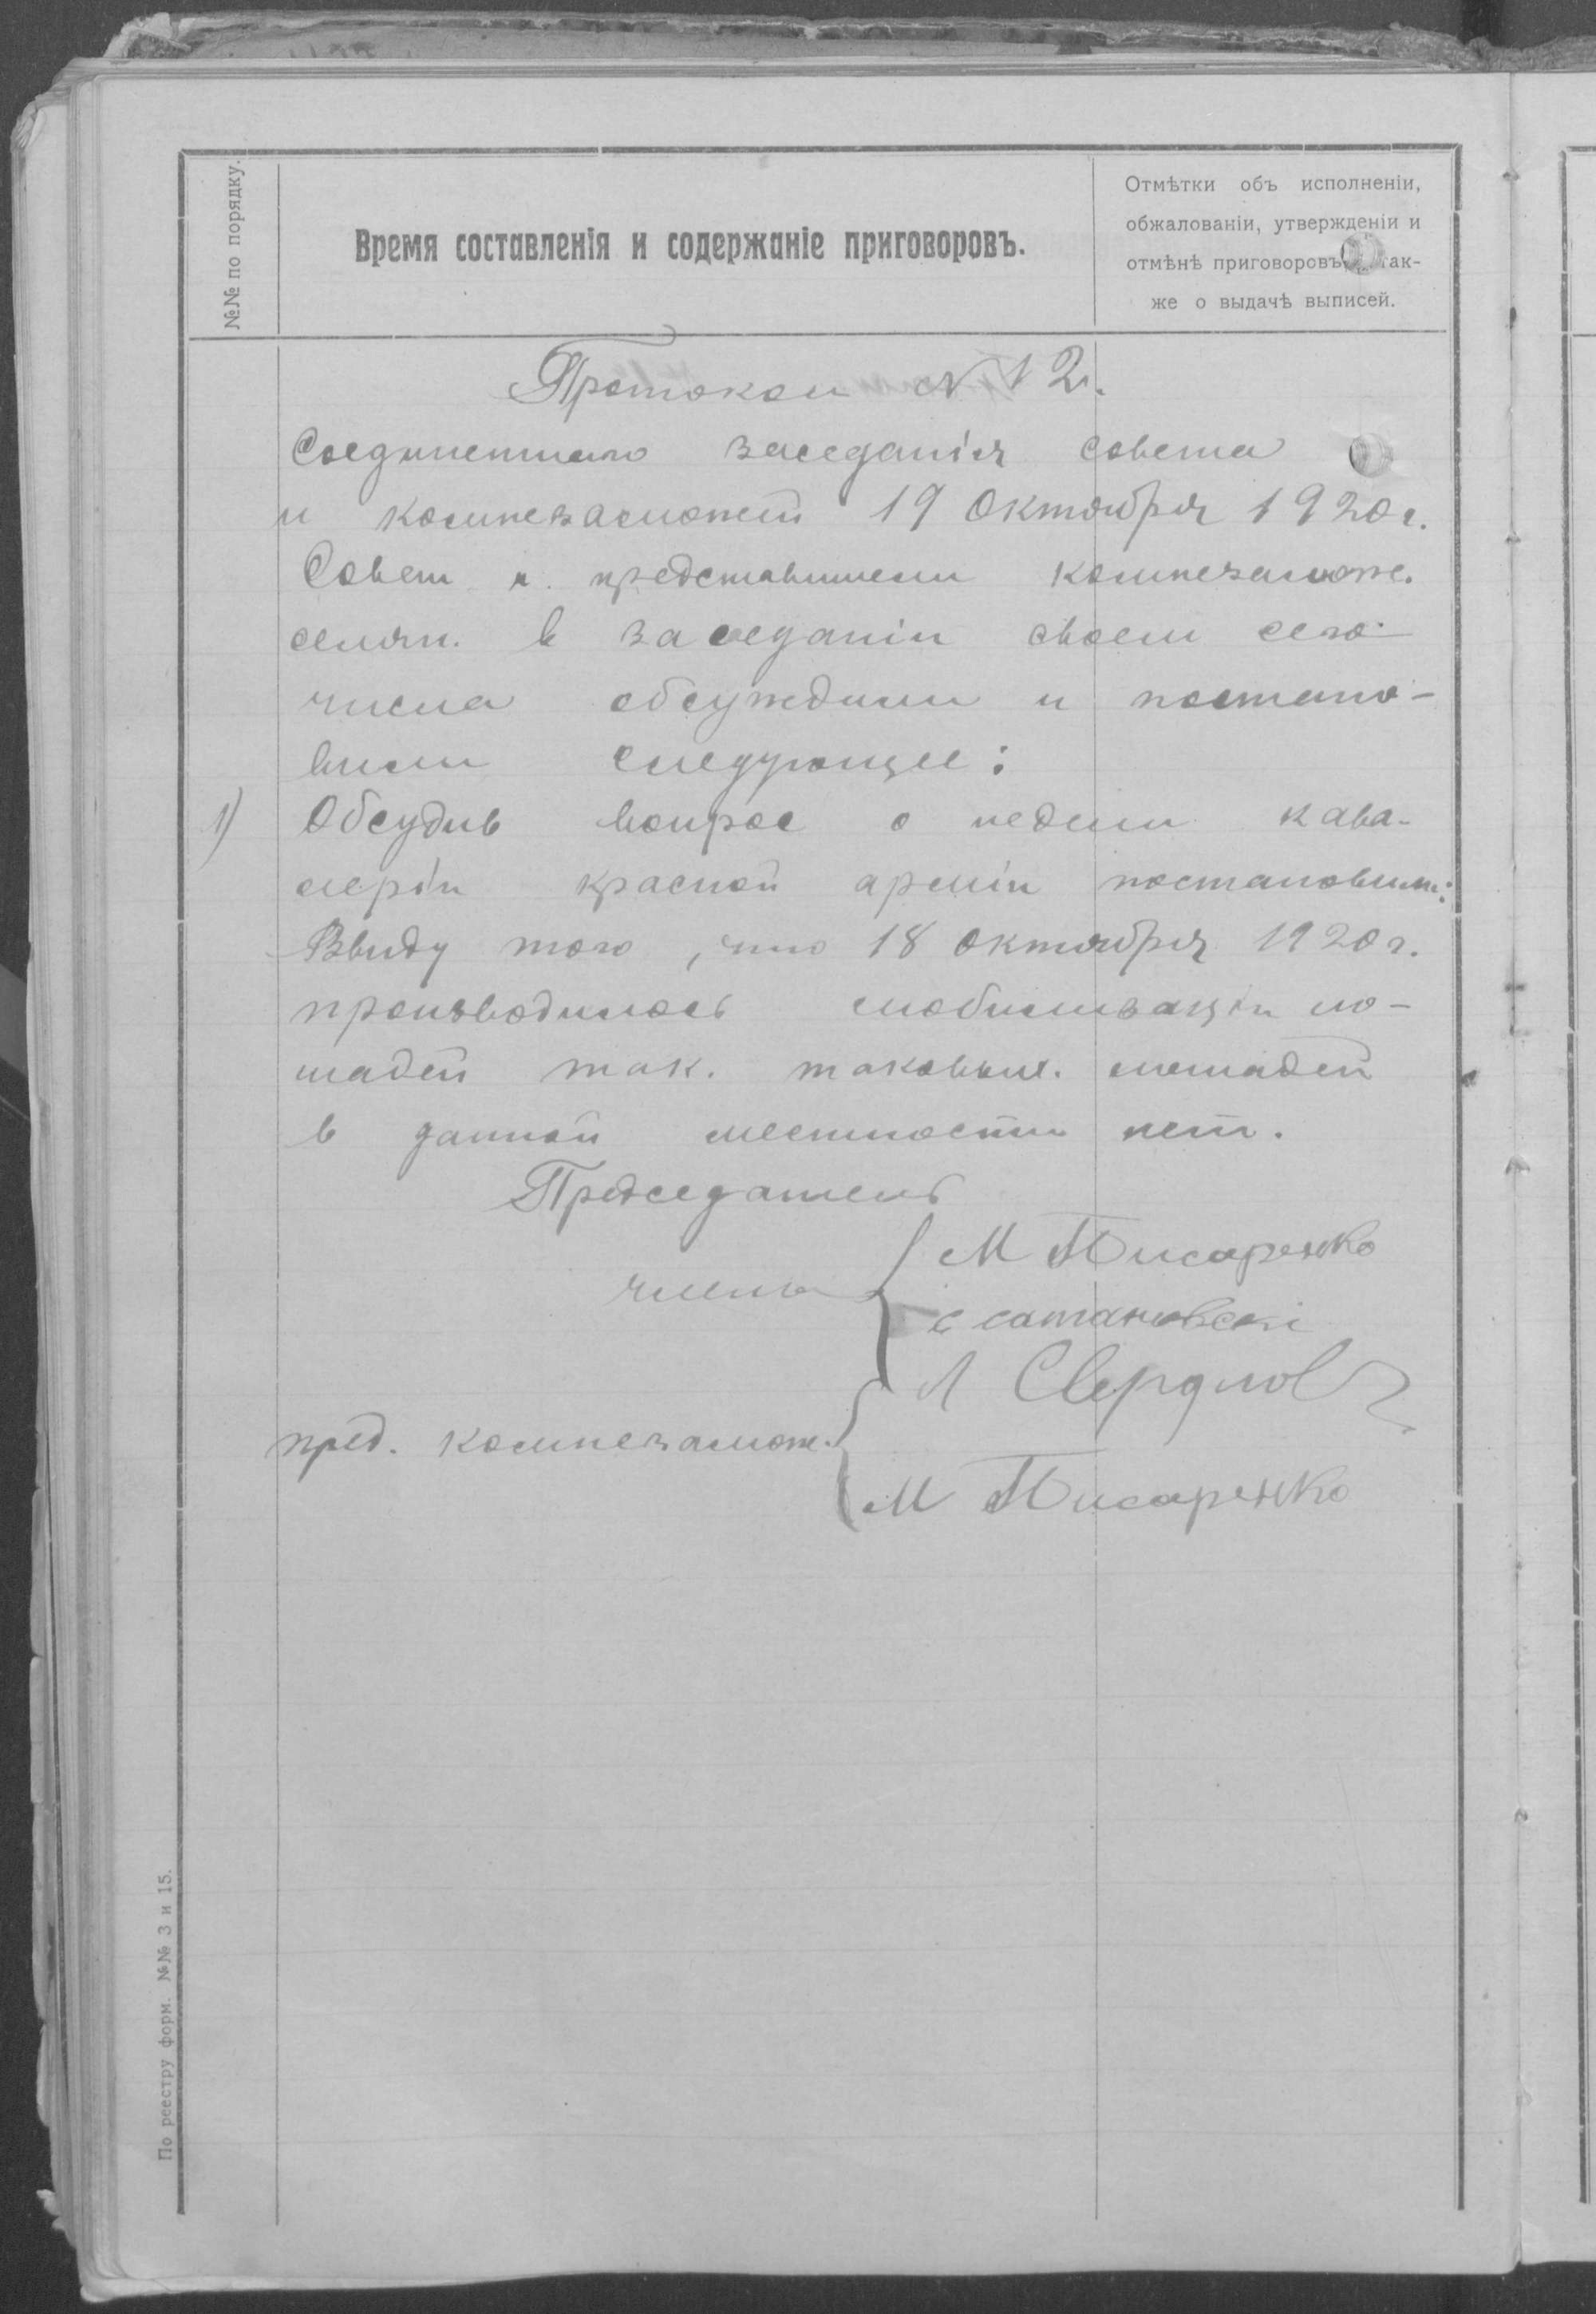 №№ по порядку.
Время составленія и содержаніе приговоровъ.
Отмѣтки объ исполненіи,
обжалованіи, утвержденіи и
отмѣнѣ приговоровъ, так-
же о выдачѣ выписей.
Протокол № 12.
Соединеннаго заседанія совета
и комнезаможей 19 Октября 1920 г.
Совет и представители комнезамож.
селян. в заседаніи своем сего
числа обсуждали и постано-
вили следующее:
1) Обсудив вопрос о недели кава-
леріи красной арміи постановили:
Ввиду того, что 18 октября 1920 г.
производилось мобилизаціи ло-
шадей так. таковых. лошадей
в данной местности нет.
Председатель
члены
М Писаренко
с сатановскі
Л Свердлов
пред. комнезамож.
М Писаренко
По реестру форм. №№ 3 и 15.